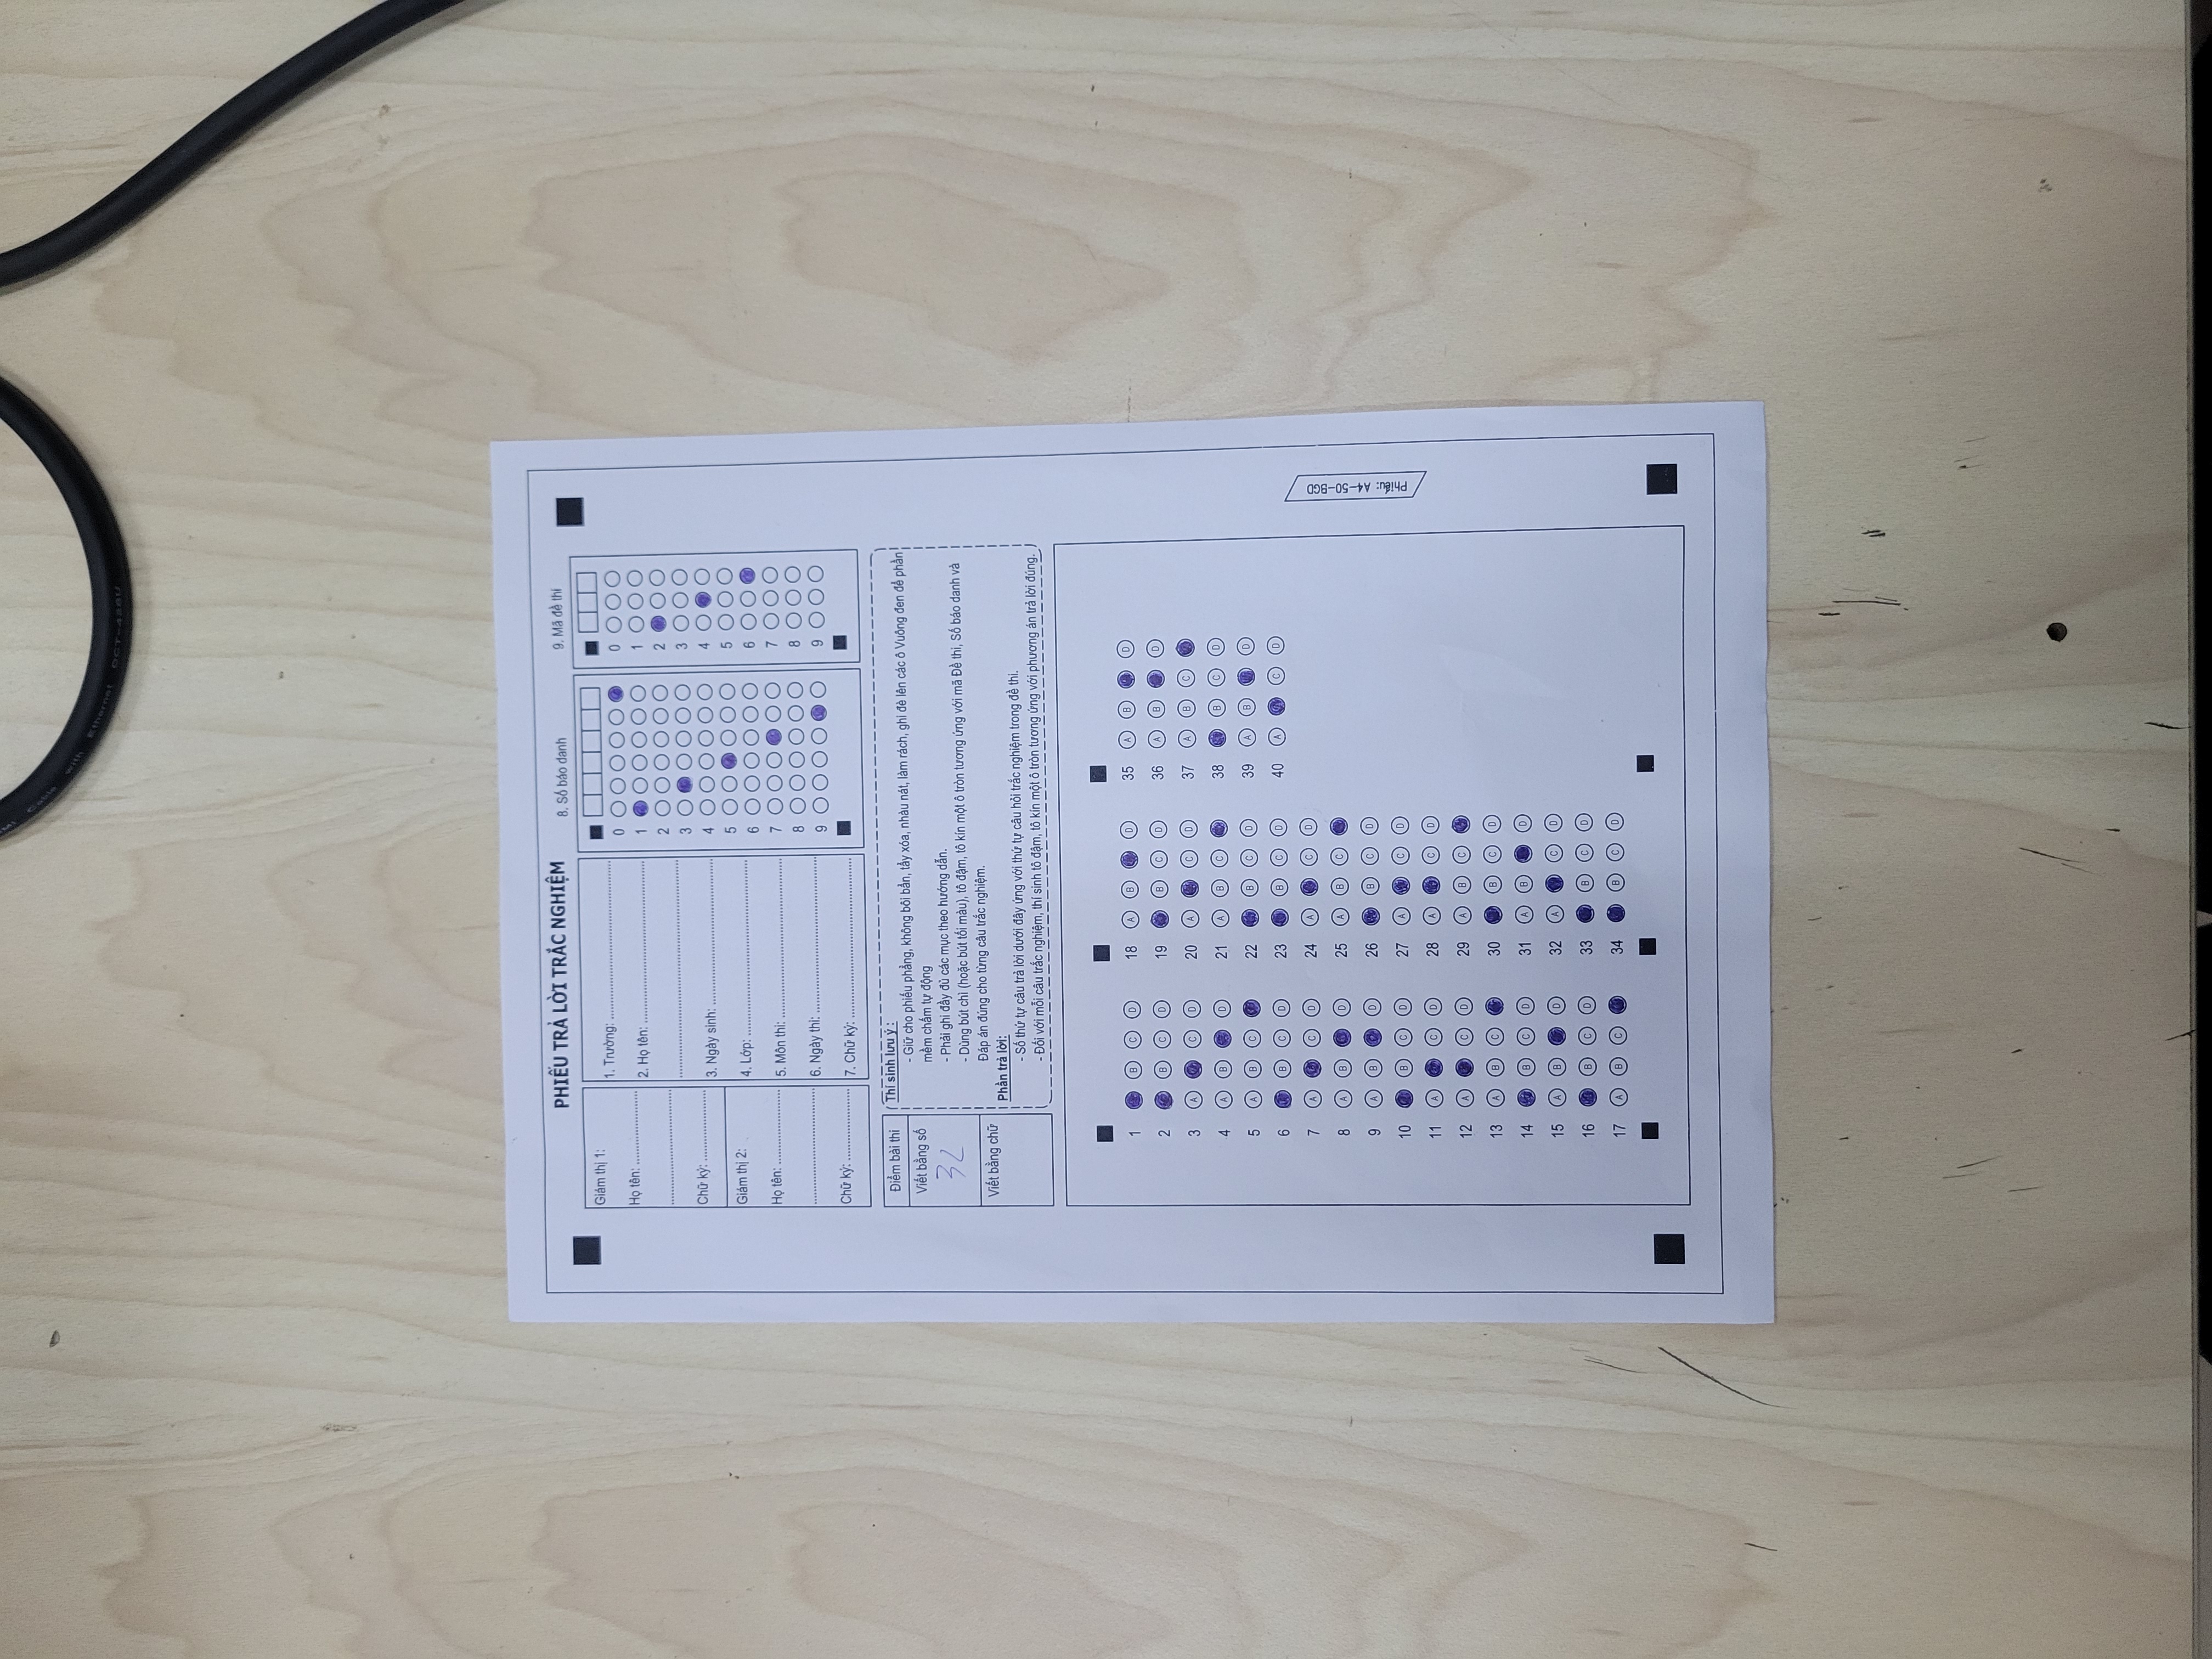 Cable with Ethernet DCT-426U
PHIẾU TRẢ LỜI TRẮC NGHIỆM
8. Số báo danh
9. Mã đề thi
Giám thị 1:
Họ tên:
Chữ ký:
Giám thị 2:
Họ tên:
Chữ ký:
1. Trường:
2. Họ tên:
3. Ngày sinh:
4. Lớp:
5. Môn thi:
6. Ngày thi:
7. Chữ ký:
0
1
2
3
4
5
6
7
8
9
0
1
2
3
4
5
6
7
8
9
Điểm bài thi
Viết bằng số
Viết bằng chữ
Thí sinh lưu ý :
- Giữ cho phiếu phẳng, không bôi bẩn, tẩy xóa, nhàu nát, làm rách, ghi đè lên các ô Vuông đen để phần
mềm chấm tự động
- Phải ghi đầy đủ các mục theo hướng dẫn.
- Dùng bút chì (hoặc bút tối màu), tô đậm, tô kín một ô tròn tương ứng với mã Đề thi, Số báo danh và
Đáp án đúng cho từng câu trắc nghiệm.
Phần trả lời:
- Số thứ tự câu trả lời dưới đây ứng với thứ tự câu hỏi trắc nghiệm trong đề thi.
- Đối với mỗi câu trắc nghiệm, thí sinh tô đậm, tô kín một ô tròn tương ứng với phương án trả lời đúng.
1 B C D
2 B C D
3 A C D
4 A B D
5 A B C
6 B C D
7 A C D
8 A B D
9 A B D
10 B C D
11 A C D
12 A C D
13 A B C
14 B C D
15 A B D
16 B C D
17 A B C
18 A B D
19 B C D
20 A C D
21 A B C
22 B C D
23 B C D
24 A C D
25 A B C
26 B C D
27 A C D
28 A C D
29 A B C
30 B C D
31 A B D
32 A C D
33 B C D
34 B C D
35 A B D
36 A B D
37 A B C
38 B C D
39 A B D
40 A C D
Phiếu: A4-50-BGD